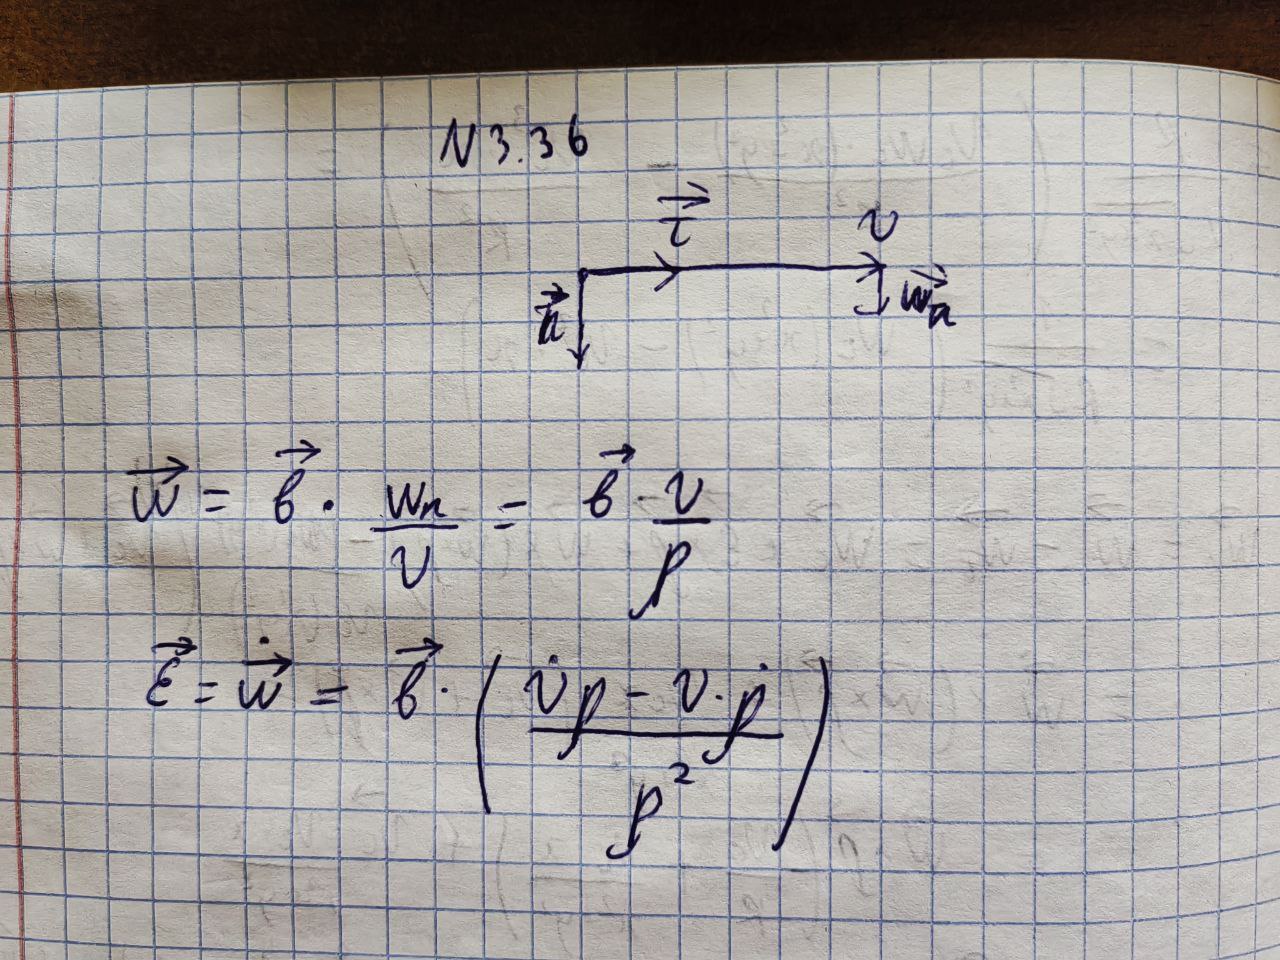 N 3.36
τ⃗ v
n⃗ w⃗ₙ
w⃗ = b⃗ · wₙ/v = b⃗ · v/ρ
ε⃗ = ẇ⃗ = b⃗ · ( (v̇ρ − v·ρ̇)/ρ² )